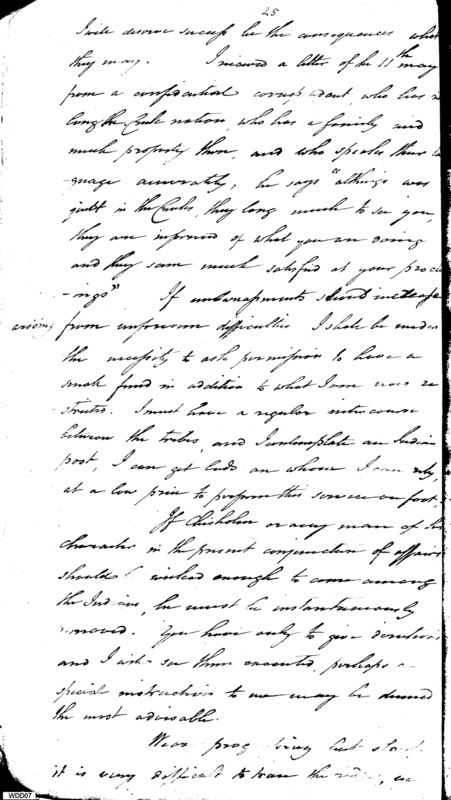 25
I will deserve success be the consequences what
they may. I received a letter of the 11th may
from a confidential correspondent, who lives
long the Creek nation, who has a family and
much property there, and who speaks their
guage accurately, he says "all things was
quiet in the Creeks, they long much to see you,
they are informed of what you are doing
and they seem much satisfied at your proceed
-ings" If embarrassments should increase
arising from unforeseen difficulties I shall be under
the necessity to ask permission to have a
small fund in addition to what I am now re
stricted. I must have a regular intercourse
between the tribes, and I contemplate an Indian
post, I can get lads on whom I can rely,
at a low price to perform this service on foot.
If Chisholm or any man of his
character in the present conjuncture of affairs
should be wicked enough to come among
the Indians, he must be instantaneously
removed. You have only to give directions
and I will see them executed, perhaps a
special instruction to me may be deemed
the most advisable.
We are progressing but slowly
it is very difficult to trace the we
WDD07